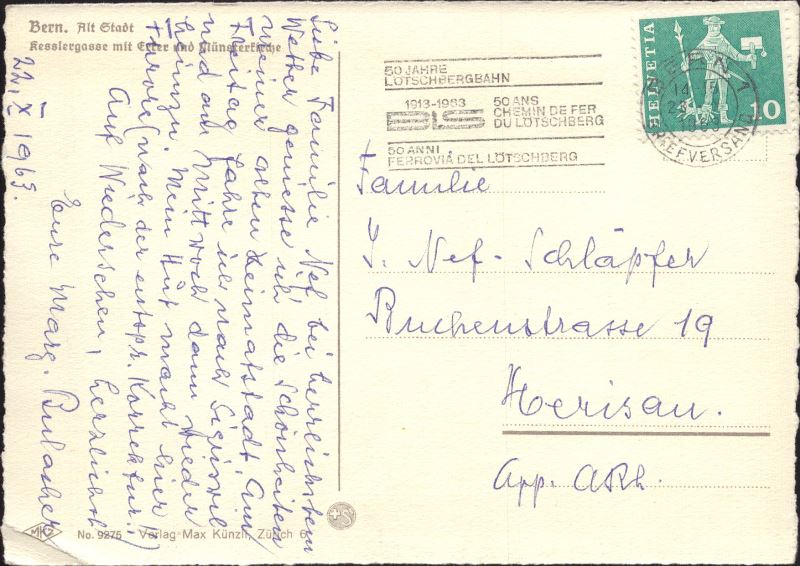 Bern. Alt Stadt
Kesslergasse mit Erker und Münsterkirche
22. X 1963.
Liebe Familie Nef, bei herrlichstem
Wetter geniesse ich die Schönheiten
meiner alten Heimatstadt. Am
Freitag fahre ich nach
und am Mittwoch dann wieder
heimzu. Mein Hut macht hier
furore (nach der entspr. Korrektur!!)
Auf Wiedersehen, herzlichst
Eure Marg.
50 JAHRE
LÖTSCHBERGBAHN
1913-1963
BLS
50 ANS
CHEMIN DE FER
DU LÖTSCHBERG
50 ANNI
FERROVIA DEL LÖTSCHBERG
HELVETIA
10
BERN 1
BRIEFVERSAND
Familie
J. Nef-Schläpfer
Buchenstrasse 19
Herisau.
App. ARh.
MKZ
No. 9275 Verlag Max Künzli, Zürich 6